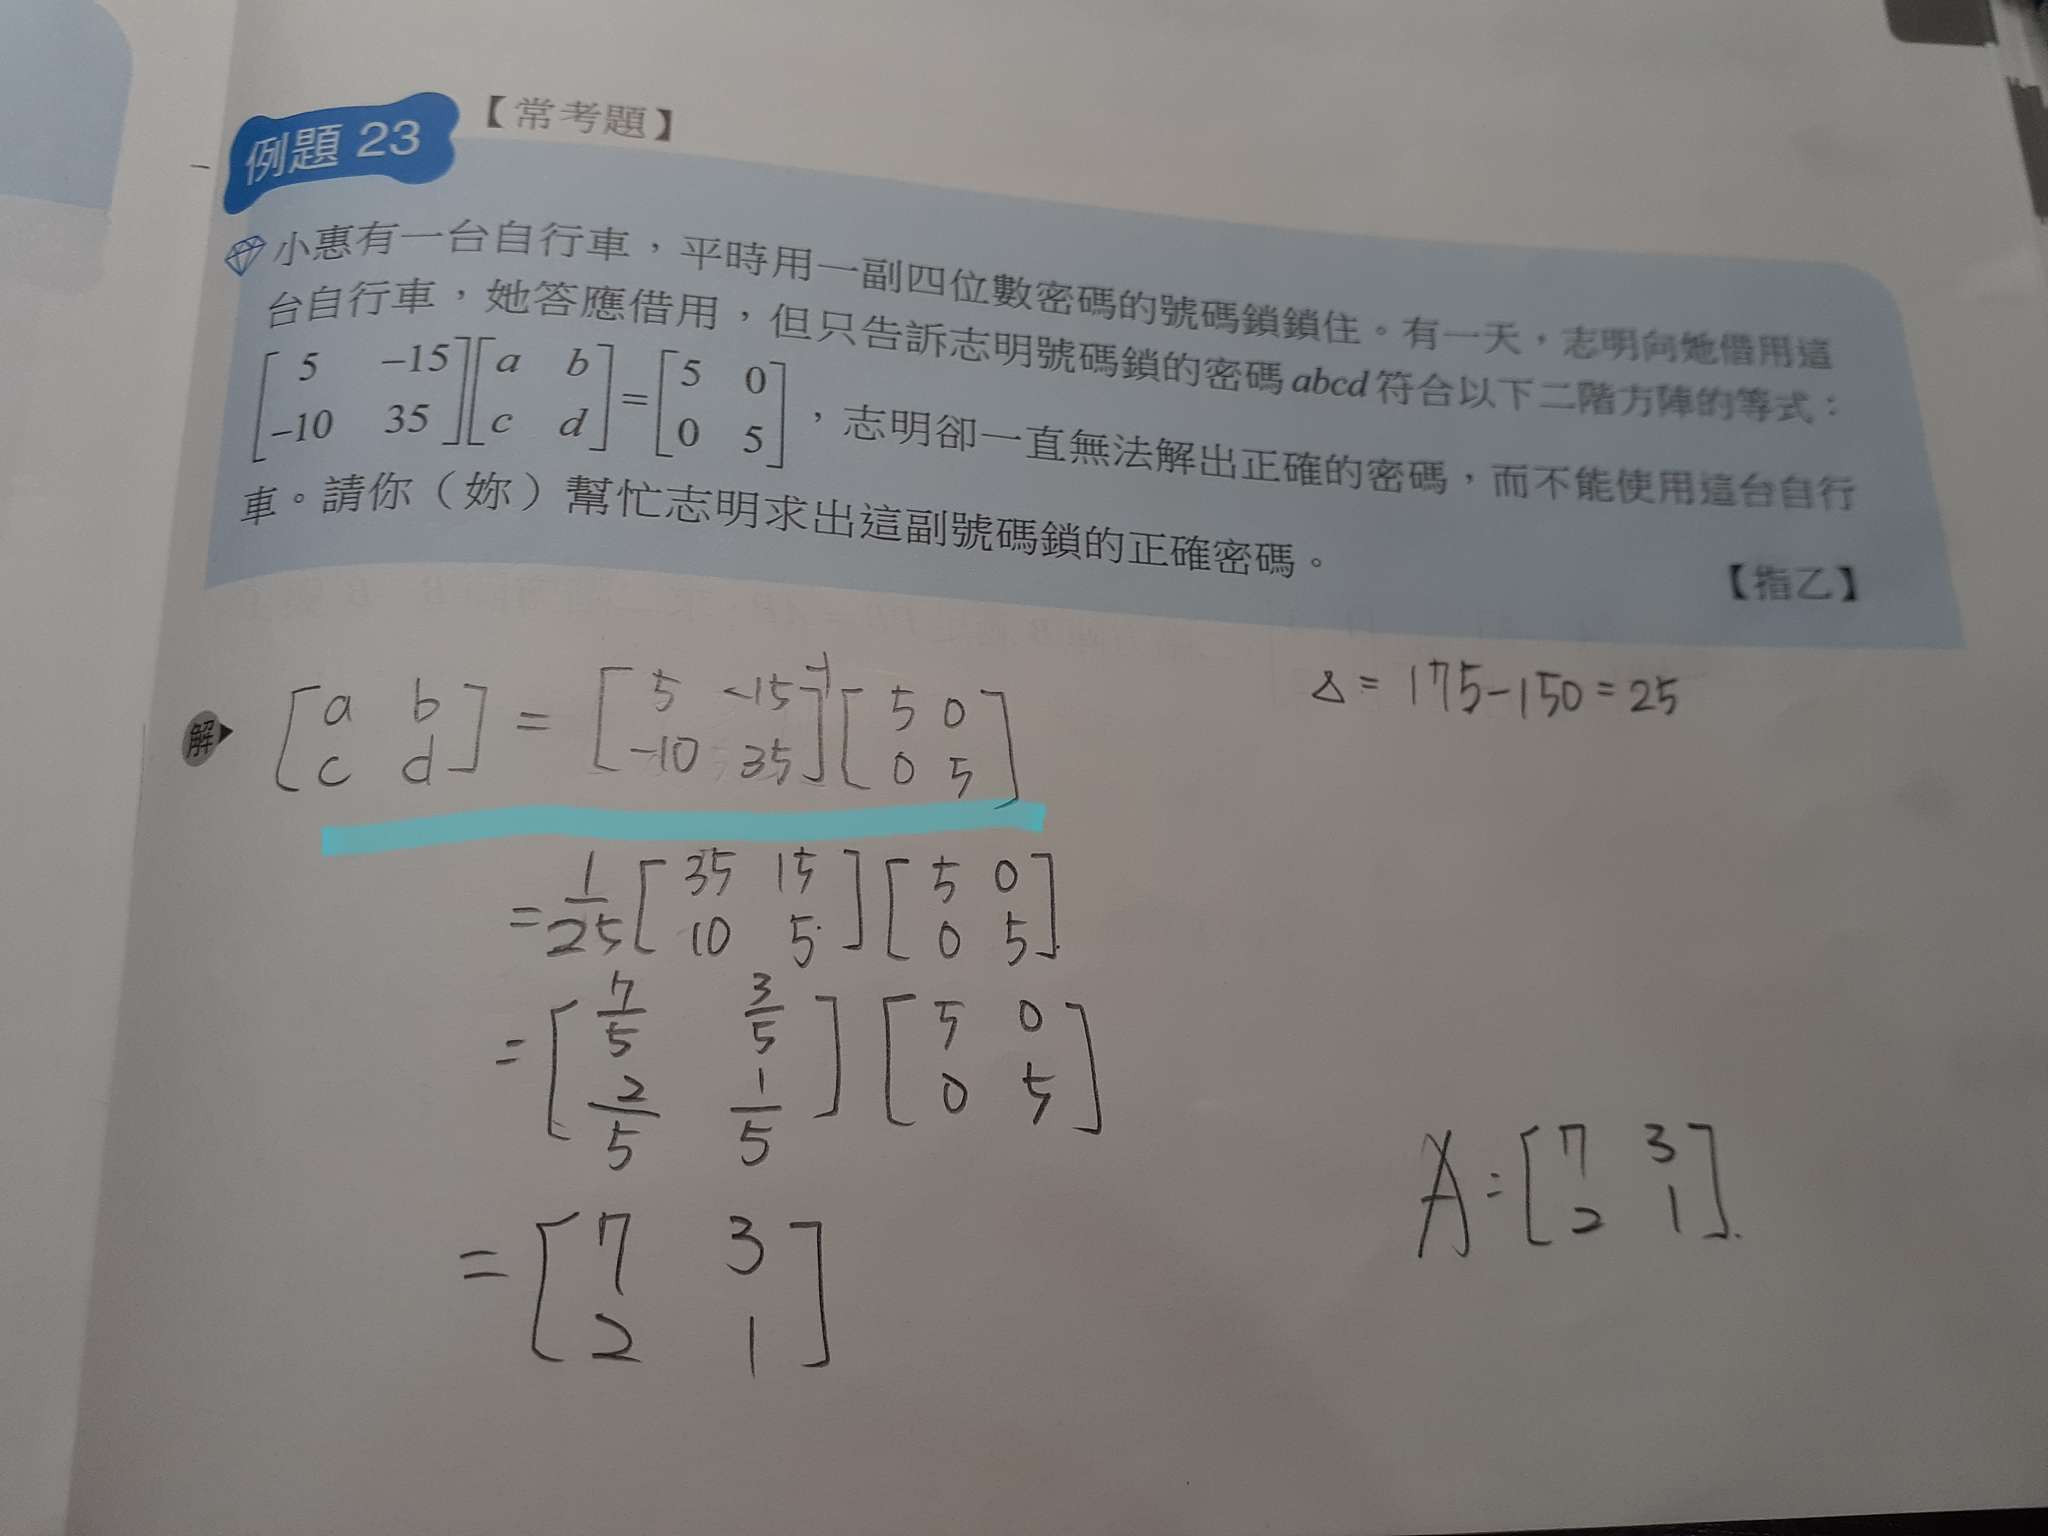 【常考題】
例題 23
小惠有一台自行車，平時用一副四位數密碼的號碼鎖鎖住。有一天，志明向她借用這
台自行車，她答應借用，但只告訴志明號碼鎖的密碼 abcd 符合以下二階方陣的等式：
[5 -15; -10 35][a b; c d] = [5 0; 0 5]，志明卻一直無法解出正確的密碼，而不能使用這台自行
車。請你（妳）幫忙志明求出這副號碼鎖的正確密碼。
【指乙】
解
[a b; c d] = [5 -15; -10 35]^-1 [5 0; 0 5]
Δ = 175-150=25
= 1/25 [35 15; 10 5][5 0; 0 5]
= [7/5 3/5; 2/5 1/5][5 0; 0 5]
= [7 3; 2 1]
A = [7 3; 2 1].